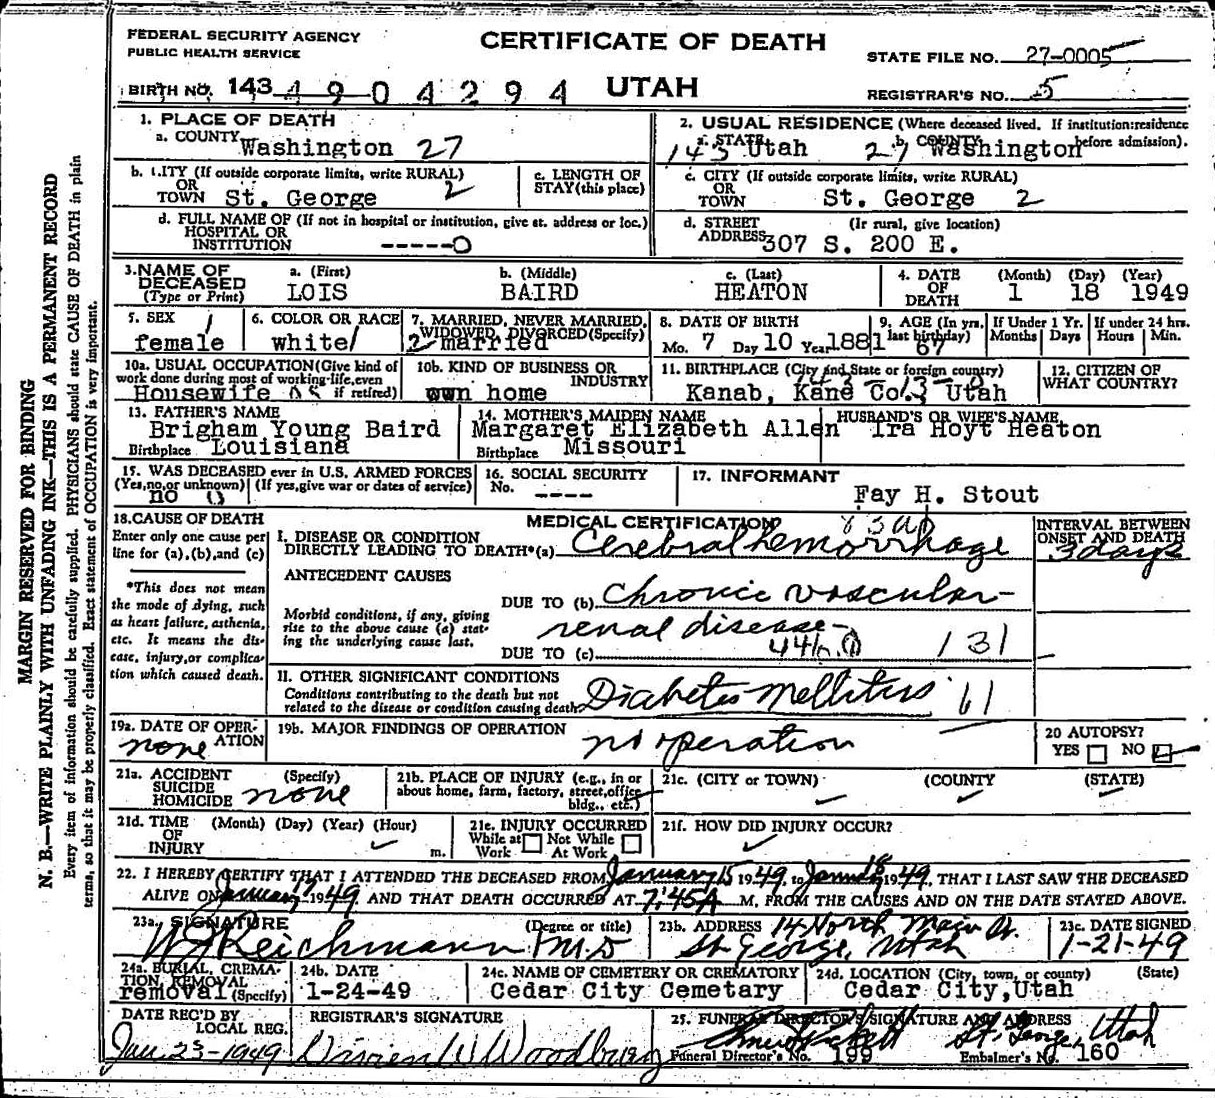 FEDERAL SECURITY AGENCY
PUBLIC HEALTH SERVICE
CERTIFICATE OF DEATH
STATE FILE NO. 27-0005
BIRTH NO. 143 4 9 0 4 2 9 4 UTAH
REGISTRAR'S NO. 5
1. PLACE OF DEATH
a. COUNTY Washington 27
2. USUAL RESIDENCE (Where deceased lived. If institution: residence before admission).
a. STATE 143 Utah b. COUNTY 27 Washington
b. CITY (If outside corporate limits, write RURAL)
OR
TOWN St. George 2
c. LENGTH OF
STAY (this place)
c. CITY (If outside corporate limits, write RURAL)
OR
TOWN St. George 2
d. FULL NAME OF (If not in hospital or institution, give st. address or loc.)
HOSPITAL OR
INSTITUTION -----0
d. STREET (If rural, give location)
ADDRESS 307 S. 200 E.
3. NAME OF
DECEASED
(Type or Print)
a. (First) b. (Middle) c. (Last)
LOIS BAIRD HEATON
4. DATE
OF
DEATH
(Month) (Day) (Year)
1 18 1949
5. SEX 1
female
6. COLOR OR RACE
white/
7. MARRIED, NEVER MARRIED,
WIDOWED, DIVORCED (Specify)
2 married
8. DATE OF BIRTH
Mo. 7 Day 10 Year 1881
9. AGE (In yrs.
last birthday)
67
If Under 1 Yr.
Months Days
If under 24 hrs.
Hours Min.
10a. USUAL OCCUPATION (Give kind of
work done during most of working life, even
if retired)
Housewife
10b. KIND OF BUSINESS OR
INDUSTRY
own home
11. BIRTHPLACE (City and State or foreign country)
Kanab, Kane Co. Utah
12. CITIZEN OF
WHAT COUNTRY?
13. FATHER'S NAME
Brigham Young Baird
Birthplace Louisiana
14. MOTHER'S MAIDEN NAME
Margaret Elizabeth Allen
Birthplace Missouri
HUSBAND'S OR WIFE'S NAME
Ira Hoyt Heaton
15. WAS DECEASED ever in U.S. ARMED FORCES
(Yes, no, or unknown) (If yes, give war or dates of service)
no 0
16. SOCIAL SECURITY
No. ----
17. INFORMANT
Fay H. Stout
18. CAUSE OF DEATH
Enter only one cause per
line for (a), (b), and (c)
*This does not mean
the mode of dying, such
as heart failure, asthenia,
etc. It means the dis-
ease, injury, or complica-
tion which caused death.
MEDICAL CERTIFICATION
I. DISEASE OR CONDITION
DIRECTLY LEADING TO DEATH*(a) Cerebral hemorrhage
INTERVAL BETWEEN
ONSET AND DEATH
3 days
ANTECEDENT CAUSES
DUE TO (b) Chronic vascular-
Morbid conditions, if any, giving
rise to the above cause (a) stat-
ing the underlying cause last.
renal disease-
DUE TO (c) 131
II. OTHER SIGNIFICANT CONDITIONS
Conditions contributing to the death but not
related to the disease or condition causing death
Diabetes Mellitus 61
19a. DATE OF OPER-
ATION
none
19b. MAJOR FINDINGS OF OPERATION
no operation
20 AUTOPSY?
YES NO
21a. ACCIDENT
SUICIDE
HOMICIDE
(Specify)
none
21b. PLACE OF INJURY (e.g., in or
about home, farm, factory, street, office
bldg., etc.)
21c. (CITY or TOWN) (COUNTY) (STATE)
21d. TIME
OF
INJURY
(Month) (Day) (Year) (Hour)
m.
21e. INJURY OCCURRED
While at Work Not While At Work
21f. HOW DID INJURY OCCUR?
22. I HEREBY CERTIFY THAT I ATTENDED THE DECEASED FROM January 15 1949, to Jan 18 1949, THAT I LAST SAW THE DECEASED
ALIVE ON January 17 1949 AND THAT DEATH OCCURRED AT 7:45A M, FROM THE CAUSES AND ON THE DATE STATED ABOVE.
23a. SIGNATURE (Degree or title)
Reichmann M.D
23b. ADDRESS 14 North Main St.
St George, Utah
23c. DATE SIGNED
1-21-49
24a. BURIAL, CREMA-
TION, REMOVAL
(Specify)
removal
24b. DATE
1-24-49
24c. NAME OF CEMETERY OR CREMATORY
Cedar City Cemetary
24d. LOCATION (City, town, or county) (State)
Cedar City, Utah
DATE REC'D BY
LOCAL REG.
Jan 23-1949
REGISTRAR'S SIGNATURE
W Woodbury
25. FUNERAL DIRECTOR'S SIGNATURE AND ADDRESS
St. George, Utah
Funeral Director's No. 199
Embalmer's No. 160
MARGIN RESERVED FOR BINDING
N. B.—WRITE PLAINLY WITH UNFADING INK—THIS IS A PERMANENT RECORD
Every item of information should be carefully supplied. PHYSICIANS should state CAUSE OF DEATH in plain
terms, so that it may be properly classified. Exact statement of OCCUPATION is very important.